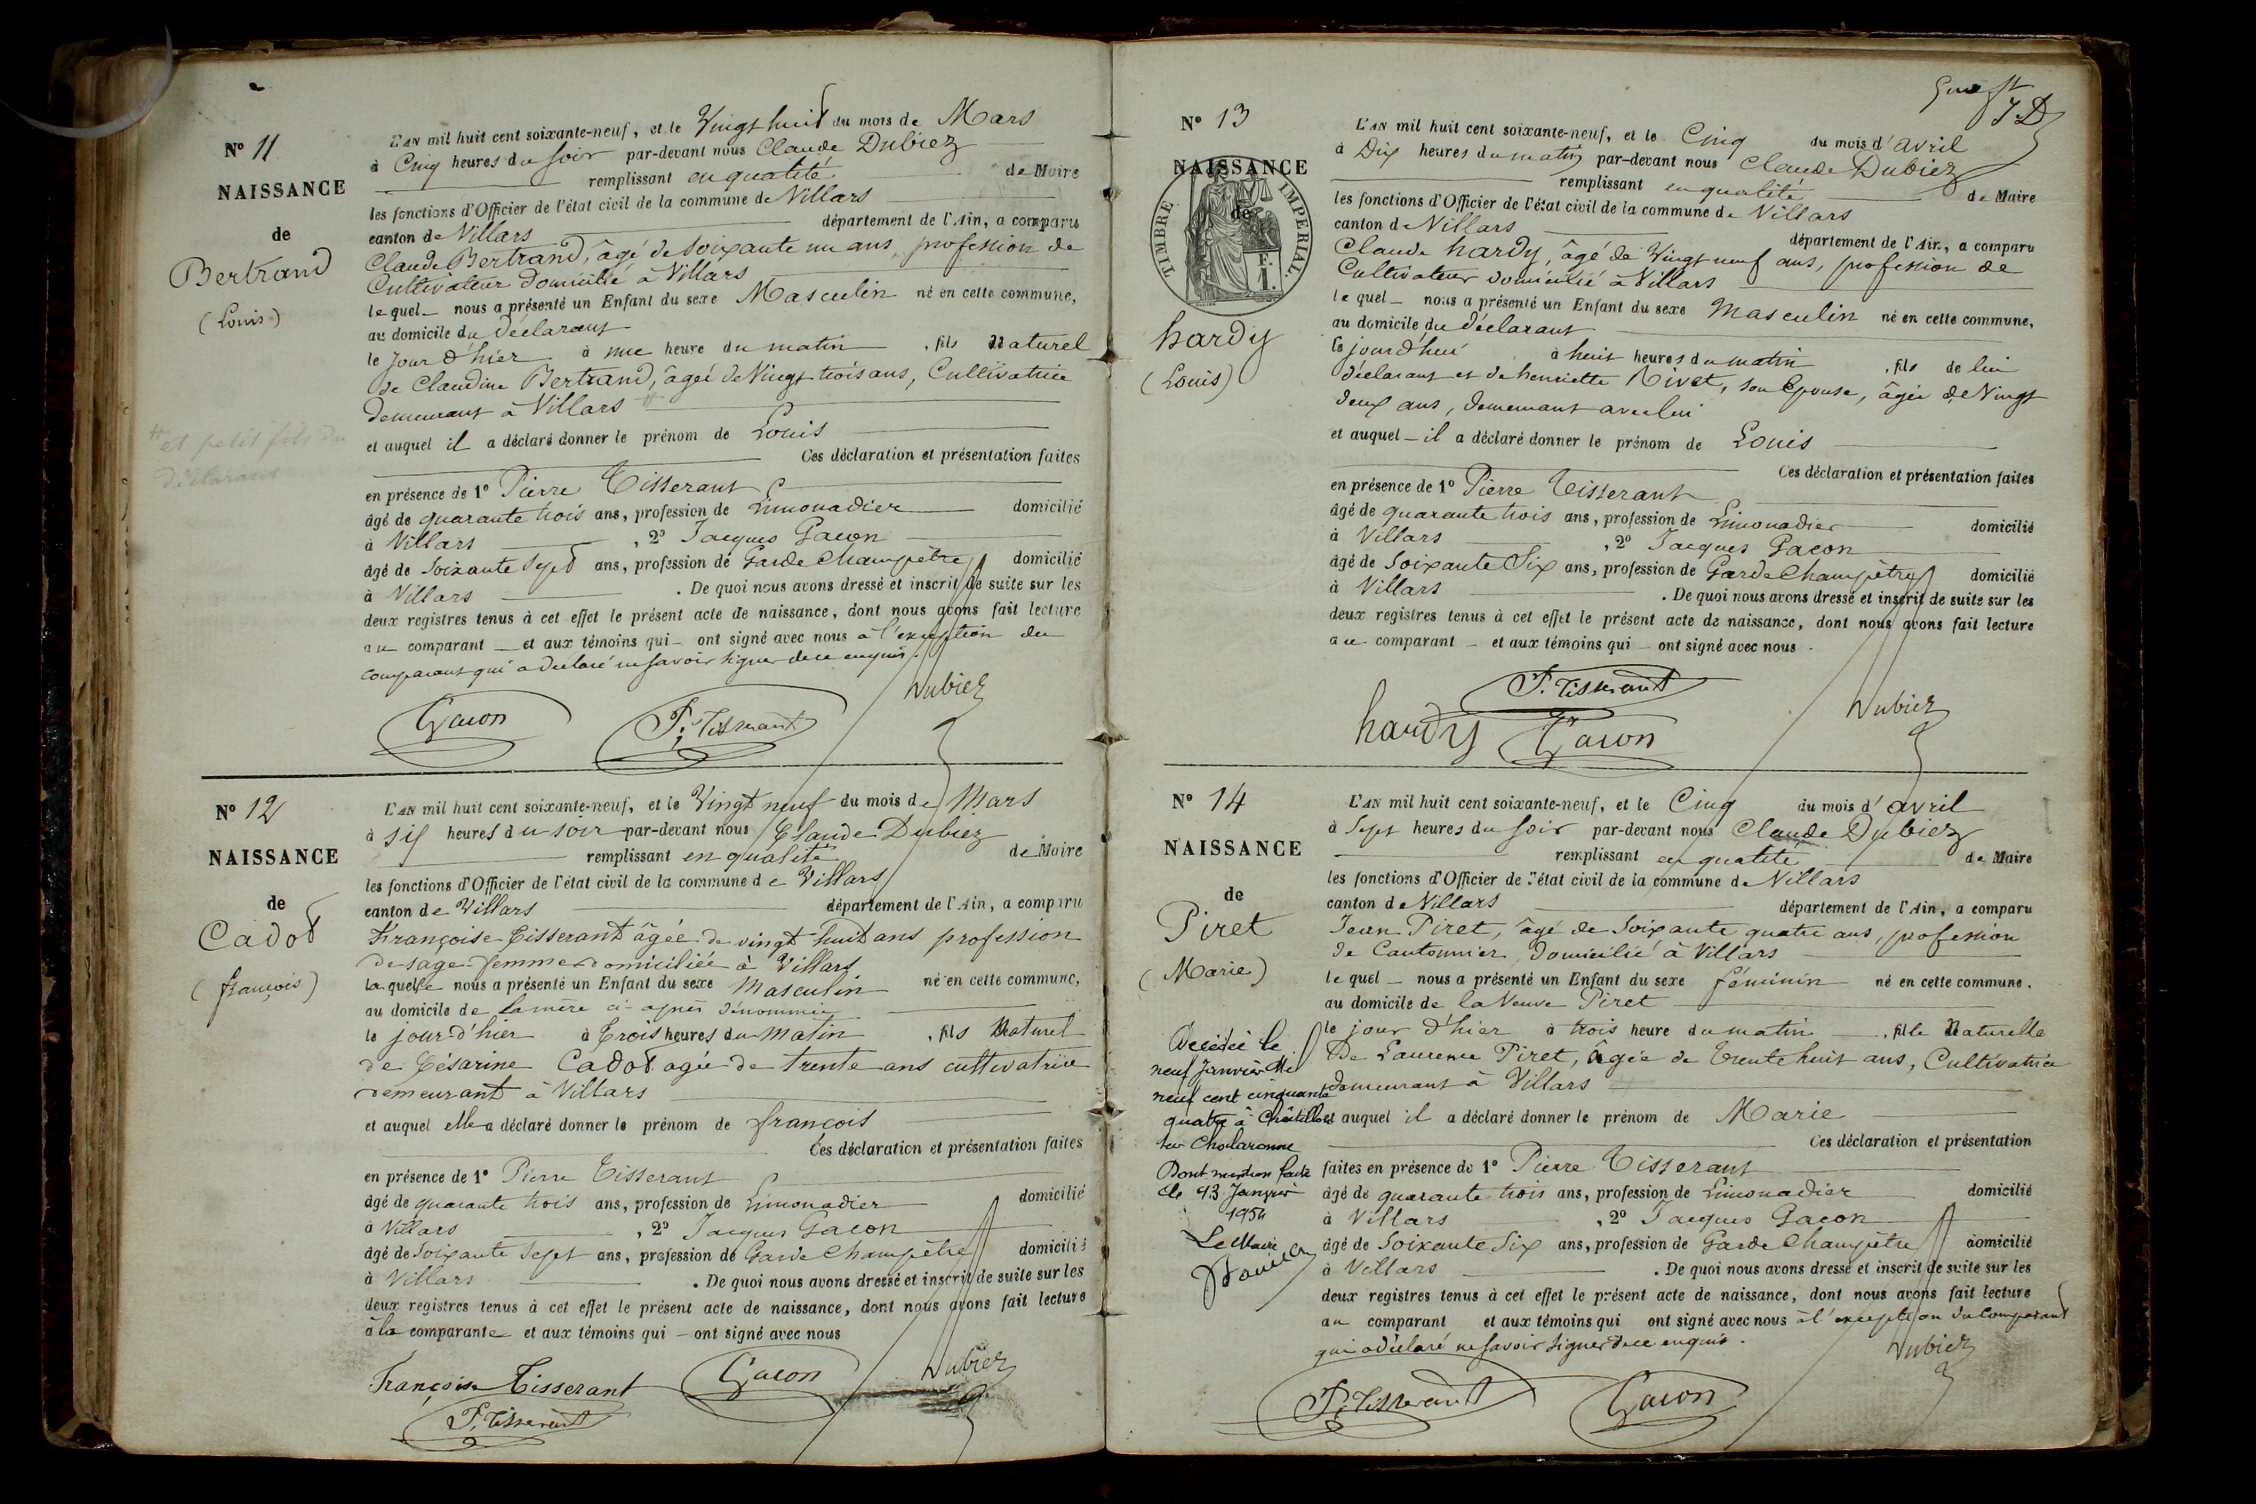 N° 11
NAISSANCE
de
Bertrand
(Louis)
L'AN mil huit cent soixante-neuf, et le Vingt huit du mois de Mars
à Cinq heures du soir par-devant nous Claude Dubiez
remplissant en qualité de Maire
les fonctions d'Officier de l'état civil de la commune de Villars
canton de Villars département de l'Ain, a comparu
Claude Bertrand, âgé de soixante un ans, profession de
Cultivateur domicilié à Villars
lequel nous a présenté un Enfant du sexe Masculin né en cette commune,
au domicile du déclarant
le Jour d'hier à une heure du matin, fils Naturel
de Claudine Bertrand, âgée de Vingt trois ans, Cultivatrice
demeurant à Villars #
# et petit fils du
déclarant
et auquel il a déclaré donner le prénom de Louis
Ces déclaration et présentation faites
en présence de 1° Pierre Tisserant
âgé de quarante trois ans, profession de Limonadier domicilié
à Villars, 2° Jacques Gacon
âgé de Soixante Sept ans, profession de Garde Champêtre domicilié
à Villars. De quoi nous avons dressé et inscrit de suite sur les
deux registres tenus à cet effet le présent acte de naissance, dont nous avons fait lecture
au comparant et aux témoins qui ont signé avec nous à l'exception du
comparant qui a déclaré ne savoir signer de ce enquis.
Dubiez
Gacon P. Tisserant
N° 12
NAISSANCE
de
Cadot
(françois)
L'AN mil huit cent soixante-neuf, et le Vingt neuf du mois de Mars
à six heures du soir par-devant nous Claude Dubiez
remplissant en qualité de Maire
les fonctions d'Officier de l'état civil de la commune de Villars
canton de Villars département de l'Ain, a comparu
Françoise Tisserant âgée de vingt huit ans profession
de sage-femme domiciliée à Villars
laquelle nous a présenté un Enfant du sexe Masculin né en cette commune,
au domicile de la mère ci-après dénommée
le jour d'hier à Trois heures du matin, fils Naturel
de Césarine Cadot agée de trente ans cultivatrice
demeurant à Villars
et auquel elle a déclaré donner le prénom de françois
Ces déclaration et présentation faites
en présence de 1° Pierre Tisserant
âgé de quarante trois ans, profession de Limonadier domicilié
à Villars, 2° Jacques Gacon
âgé de Soixante Sept ans, profession de Garde Champêtre domicilié
à Villars. De quoi nous avons dressé et inscrit de suite sur les
deux registres tenus à cet effet le présent acte de naissance, dont nous avons fait lecture
à la comparante et aux témoins qui ont signé avec nous
Françoise Tisserant Gacon Dubiez
P. Tisserant
N° 13
NAISSANCE
de
TIMBRE IMPERIAL.
1 F.
hardy
(Louis)
L'AN mil huit cent soixante-neuf, et le Cinq du mois d'avril
à Dix heures du matin par-devant nous Claude Dubiez
remplissant en qualité de Maire
les fonctions d'Officier de l'état civil de la commune de Villars
canton de Villars département de l'Ain, a comparu
Claude hardy, âgé de Vingt neuf ans, profession de
Cultivateur domicilié à Villars
lequel nous a présenté un Enfant du sexe Masculin né en cette commune,
au domicile du déclarant
le jourd'hui à huit heures du matin, fils de lui
déclarant et de henriette Rivet, son Epouse, âgée de Vingt
deux ans, demeurant avec lui
et auquel il a déclaré donner le prénom de Louis
Ces déclaration et présentation faites
en présence de 1° Pierre Tisserant
âgé de quarante trois ans, profession de Limonadier domicilié
à Villars, 2° Jacques Gacon
âgé de Soixante Six ans, profession de Garde Champêtre domicilié
à Villars. De quoi nous avons dressé et inscrit de suite sur les
deux registres tenus à cet effet le présent acte de naissance, dont nous avons fait lecture
au comparant et aux témoins qui ont signé avec nous.
P. Tisserant
hardy Gacon Dubiez
N° 14
NAISSANCE
de
Piret
(Marie)
Décédée le
neuf Janvier Mil
neuf cent cinquante
quatre à Châtillon
sur Chalaronne
Dont mention faite
le 13 Janvier
1954
Le Maire
L'AN mil huit cent soixante-neuf, et le Cinq du mois d'avril
à Sept heures du soir par-devant nous Claude Dubiez
remplissant en qualité de Maire
les fonctions d'Officier de l'état civil de la commune de Villars
canton de Villars département de l'Ain, a comparu
Jean Piret, âgé de Soixante quatre ans, profession
de Cantonnier, domicilié à Villars
lequel nous a présenté un Enfant du sexe féminin né en cette commune.
au domicile de la Veuve Piret
le jour d'hier à trois heure du matin, fille Naturelle
De Laurence Piret, âgée de Trente huit ans, Cultivatrice
demeurant à Villars
et auquel il a déclaré donner le prénom de Marie
Ces déclaration et présentation
faites en présence de 1° Pierre Tisserant
âgé de quarante trois ans, profession de Limonadier domicilié
à Villars, 2° Jacques Gacon
âgé de Soixante Six ans, profession de Garde Champêtre domicilié
à Villars. De quoi nous avons dressé et inscrit de suite sur les
deux registres tenus à cet effet le présent acte de naissance, dont nous avons fait lecture
au comparant et aux témoins qui ont signé avec nous à l'exception du Comparant
qui a déclaré ne savoir signer de ce enquis.
Dubiez
P. Tisserant Gacon